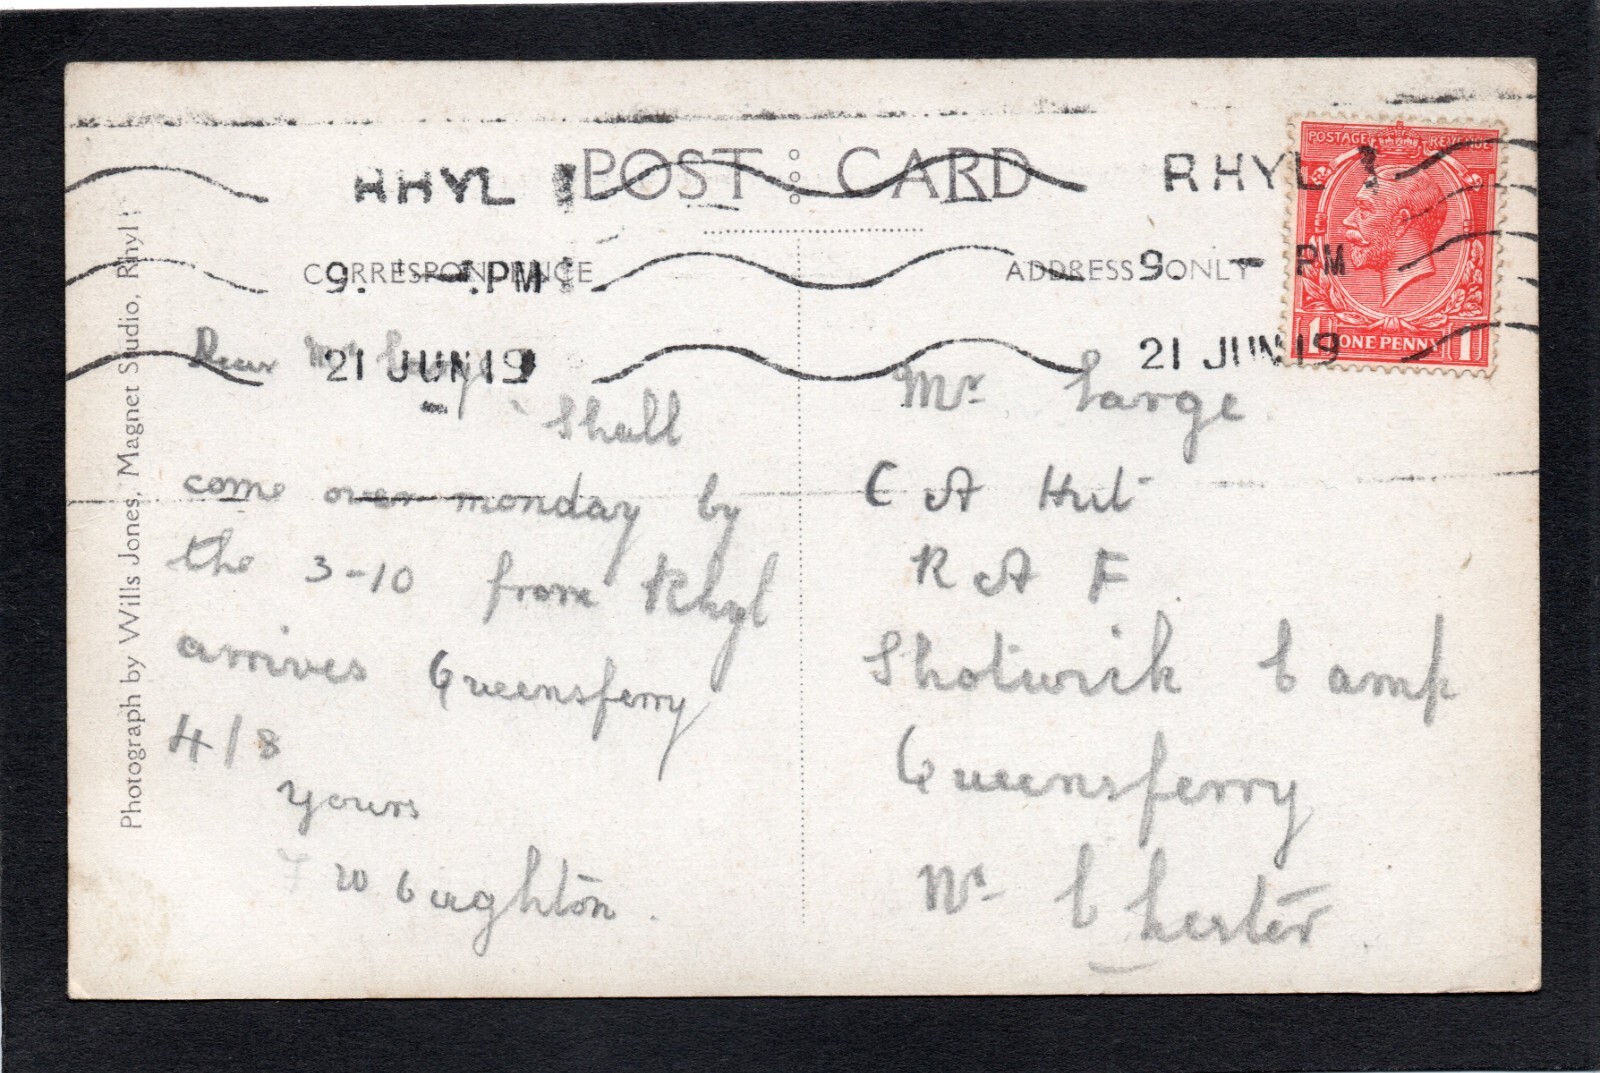 POST CARD
RHYL
RHYL
POSTAGE REVENUE
CORRESPONDENCE
ADDRESS ONLY
9. PM
9 - PM
21 JUN 19
21 JUN 19
1 ONE PENNY 1
Photograph by Wills Jones, Magnet Studio, Rhyl
Dear Mr Large
Shall
come over monday by
the 3-10 from Rhyl
arrives Queensferry
4/8
yours
Mr Large.
C A Hut
R A F
Shotwick Camp
Queensferry
Nr Chester.